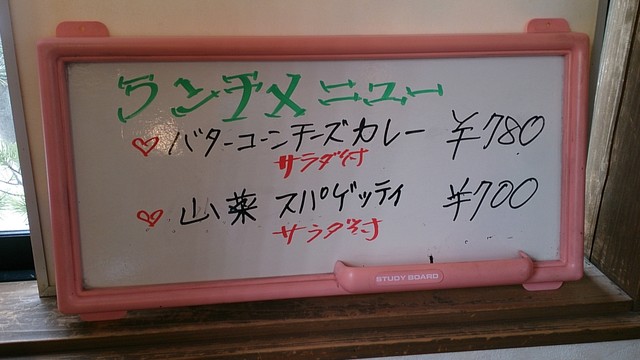 ランチメニュー
♡バターコーンチーズカレー ¥780
サラダ付
♡山菜 スパゲッティ ¥700
サラダ付
STUDY BOARD